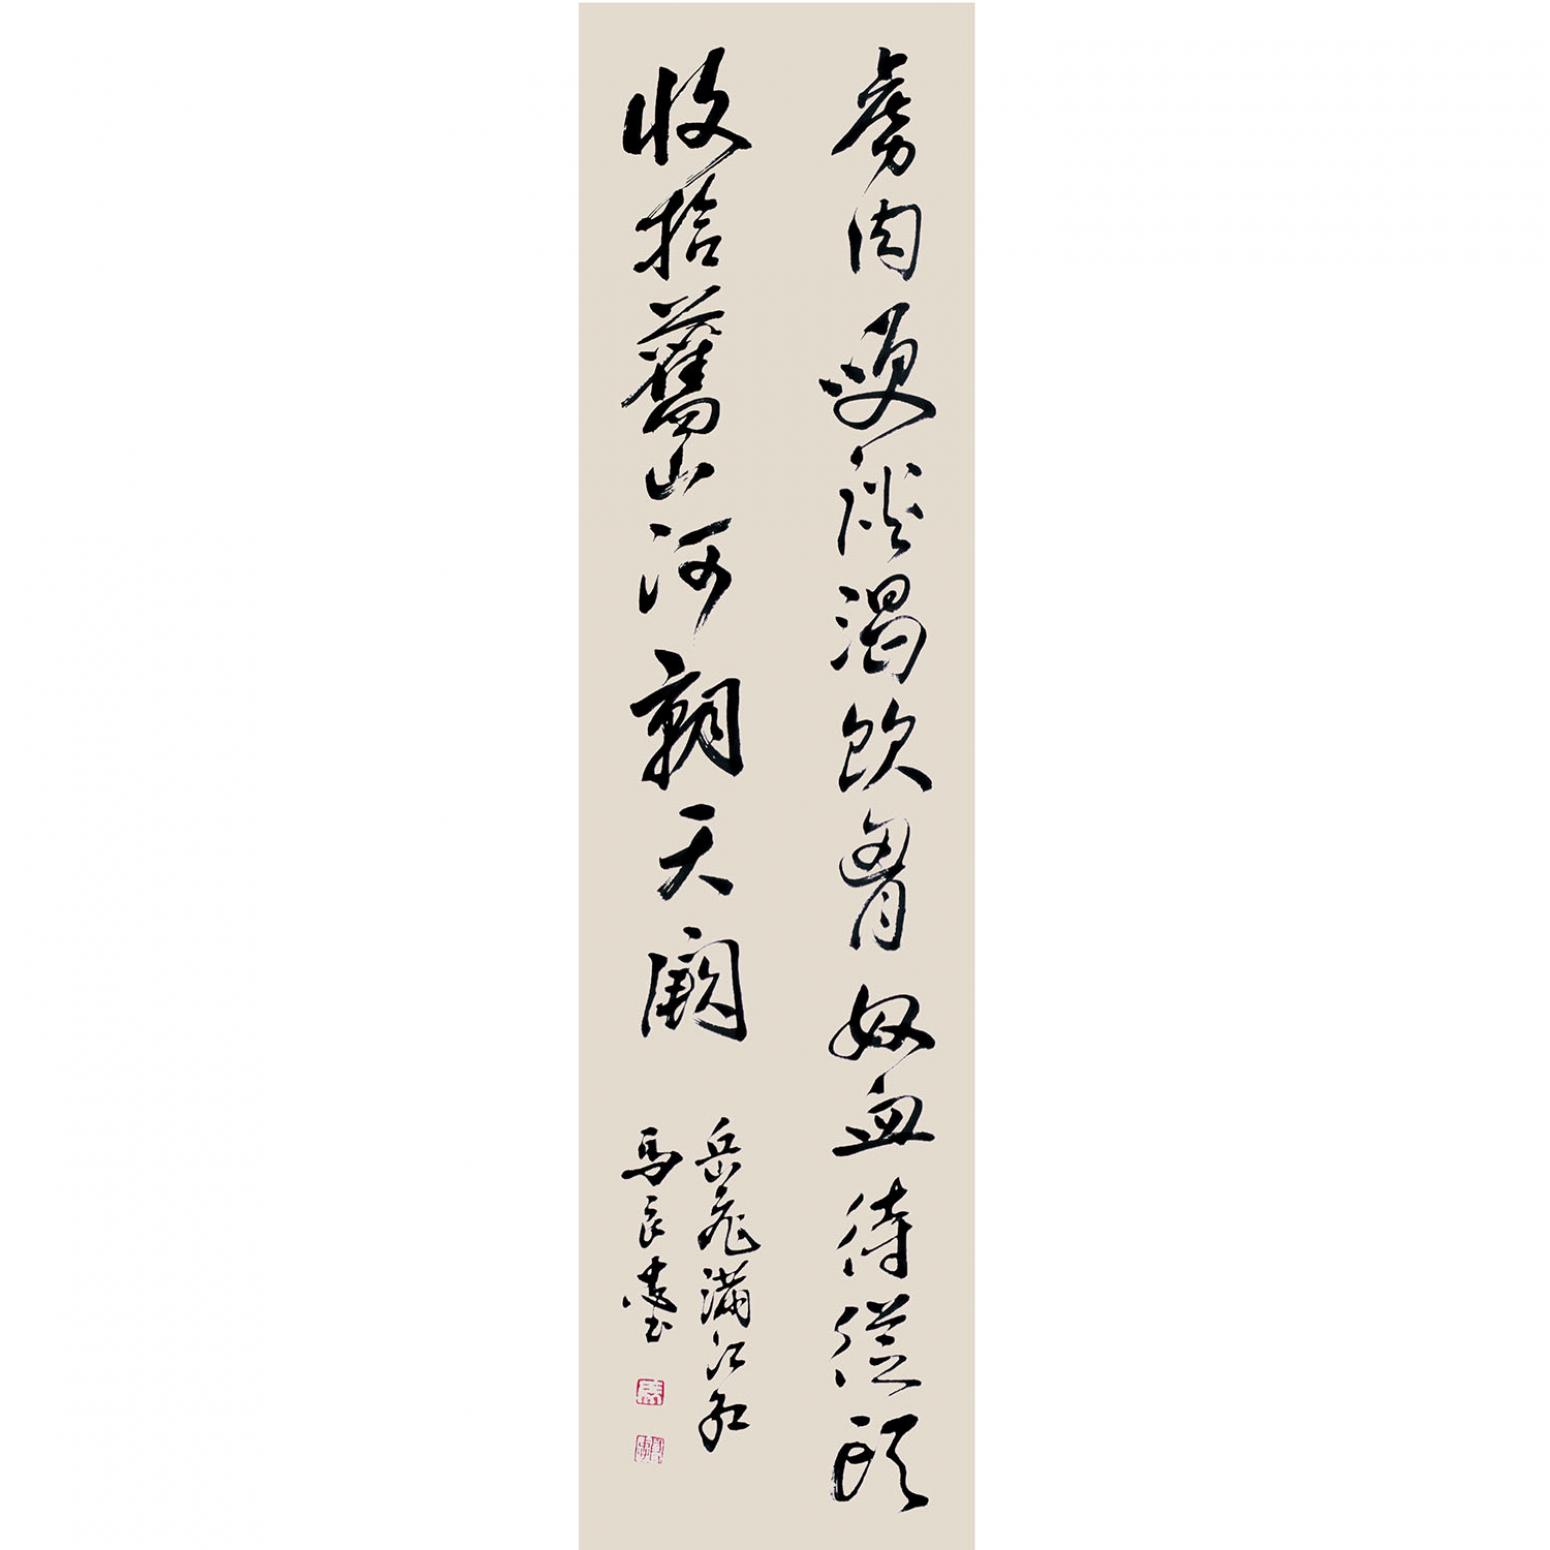 虜肉談渴飲胷奴血待從頭
收拾舊山河朝天闕
岳飛滿江紅
馬良書